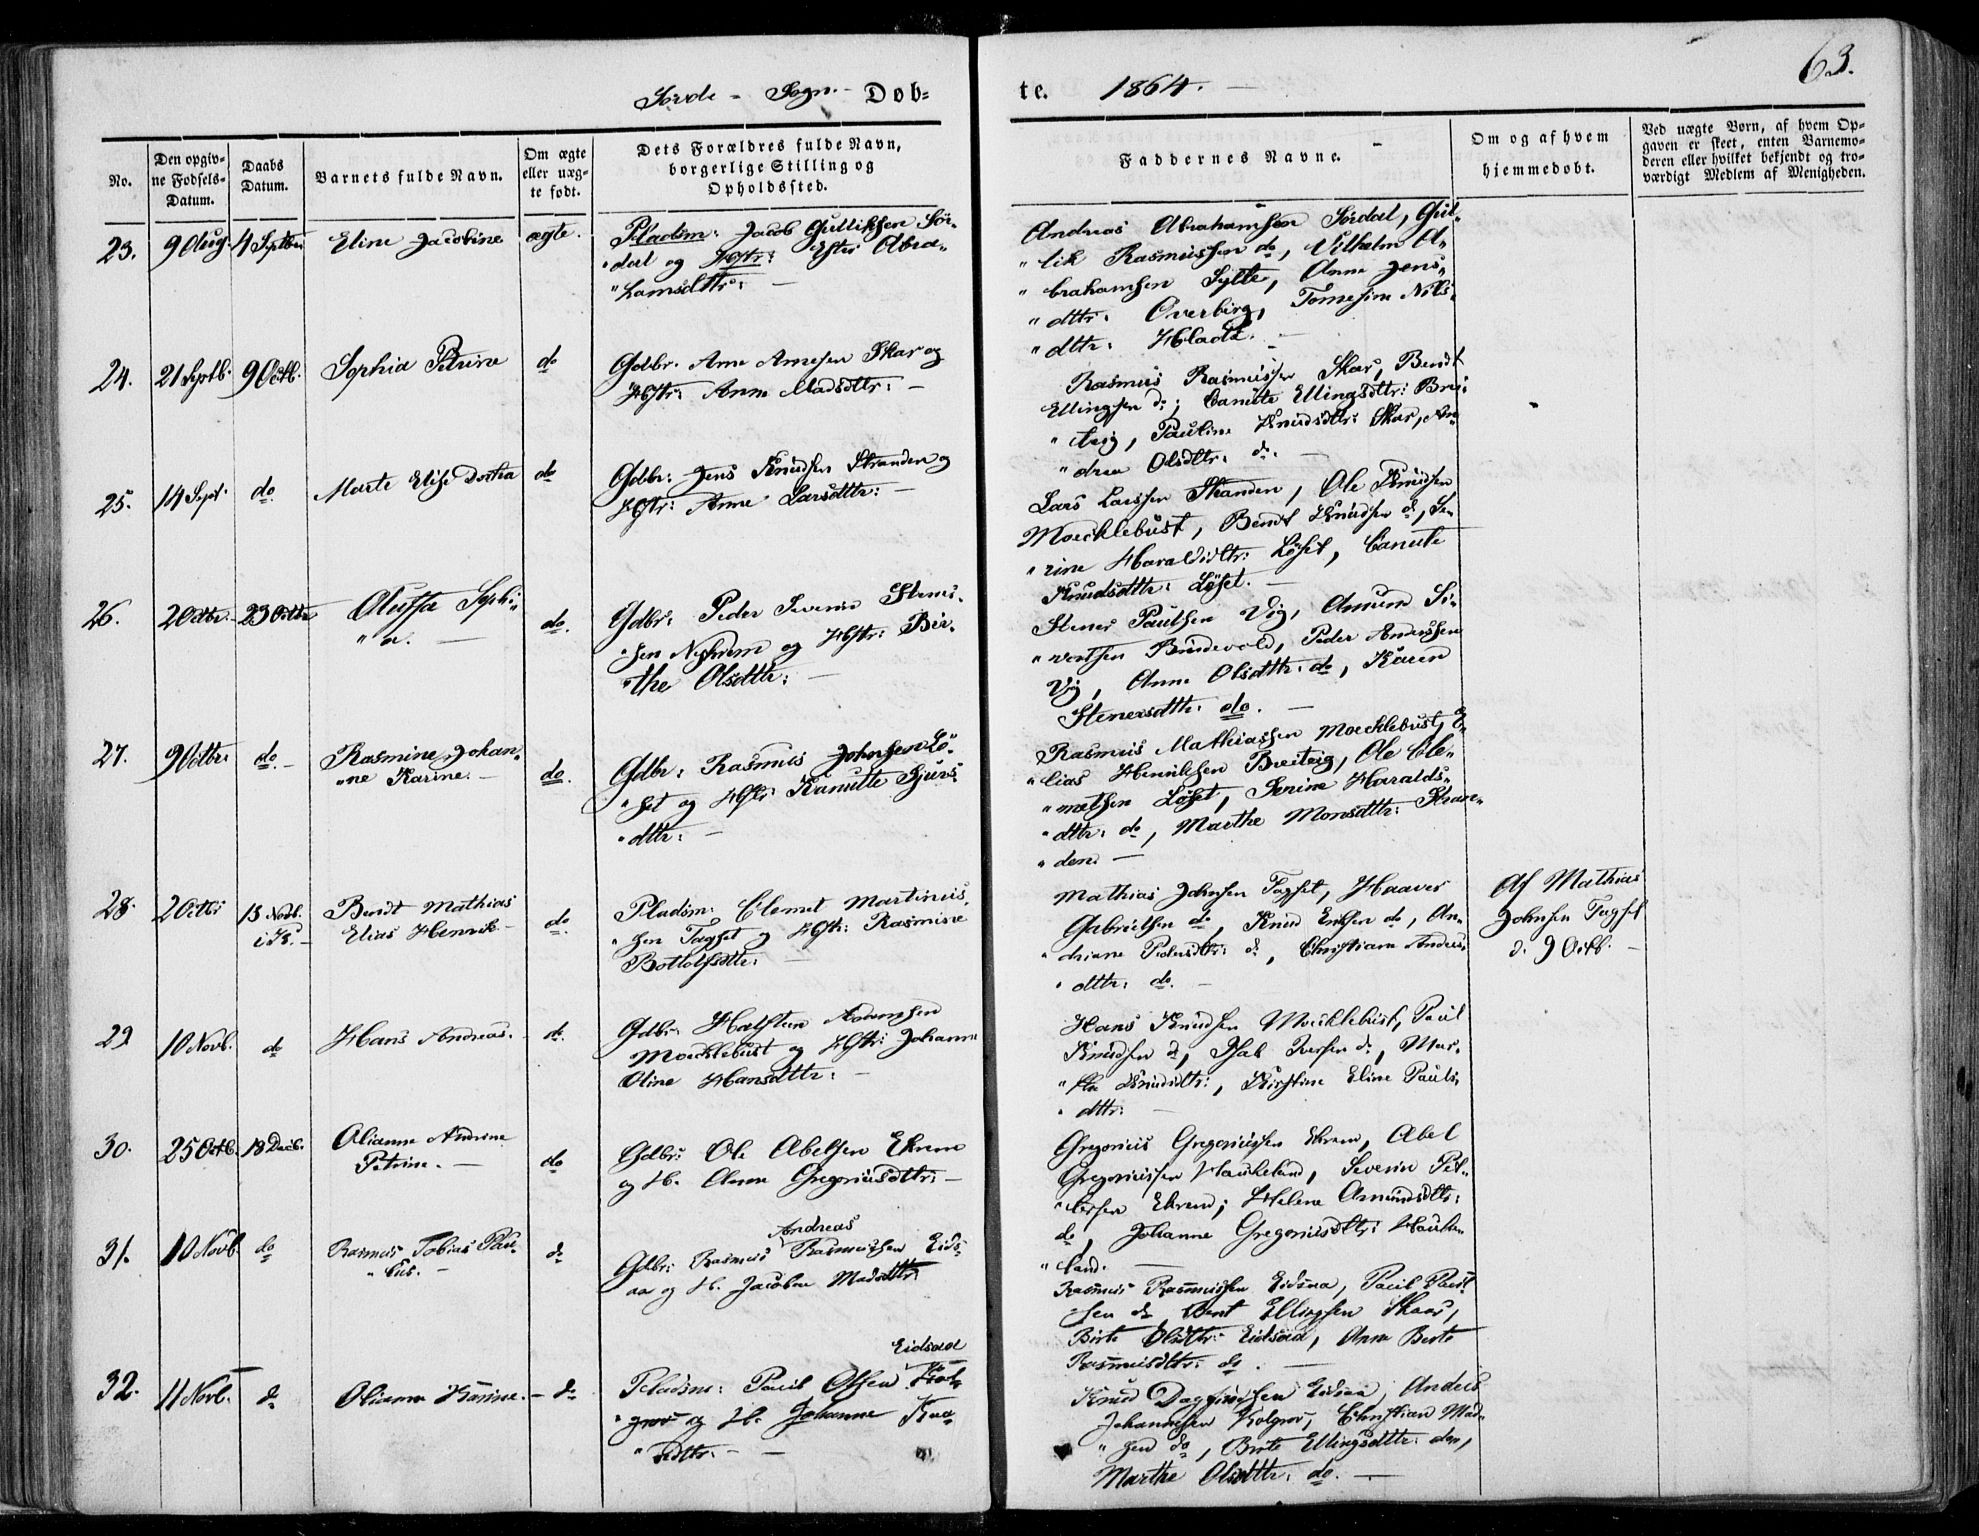 63.
Sörde - Sogn. - Døb-
te. 1864. -
No.
Den opgiv-
ne Fødsels-
Datum.
Daabs
Datum.
Barnets fulde Navn.
Om ægte
eller uæg-
te født.
Dets Forældres fulde Navn,
borgerlige Stilling og
Opholdssted.
Faddernes Navne.
Om og af hvem
hjemmedøbt.
Ved uægte Børn, af hvem Op-
gaven er skeet, enten Barnemo-
deren eller hvilket bekjendt og tro-
værdigt Medlem af Menigheden.
23. 9 Aug. 4 Septbr Eline Jacobine ægte.
Pladsm: Jacob Gulliksen Sör-
"dal og Hstr: Ester Abra-
"hamsdttr: -
Andreas Abrahamsen Sördal, Gul-
"lik Rasmussen do, Vilhelm A-
"brahamsen Sylte, Anne Jens-
"dttr: Overbirg, Tomesine Nils-
"dttr: Hlada. -
24. 21 Septb. 9 Octb. Sophia Petrine do
Gdbr. Arne Arnesen Skar og
Hstr: Anne Madsdttr: -
Rasmus Rasmussen Skar, Bendt
Ellingsen do; Canute Ellingsdttr: Brei-
"teig, Pauline Knudsdttr: Skar, An-
"drea Olsdttr. do. -
25. 14 Sept. do. Marte Elise Dortea do
Gdbr: Jens Knudsen Stranden og
Hstr: Anne Larsdttr: -
Lars Larssen Stranden, Ole Knudsen
Moecklebust, Bendt Knudsen do, Se-
"rine Haraldsdttr: Löset, Canute
Knudsdttr: Löset. -
26. 2 Octbr. 23 Octbr Oluffa Sophi-
"a. - do.
Gdbr: Peder Severin Steners-
"sen Nyhrem og Hstr: Bir-
"the Olsdttr: -
Stener Paulsen Vig, Amund Si-
"vertsen Brudevold, Peder Anderssen
Vig, Anne Olsdttr: do, Karen
Stenersdttr. do. -
27. 9 Octbr do. - Rasmine Johan-
"ne Karine. - do.
Gdbr: Rasmus Johnsen Lö-
"set og Hstr: Kanutte Sjurs-
"dttr: -
Rasmus Mathiassen Moecklebust, E-
"lias Henriksen Breiteig, Ole Cle-
"metsen Löset, Serine Haralds-
"dttr: do, Marthe Monsdttr: Stran-
"den. -
28. 2 Octbr 13 Novb.
i K. - Bendt Mathias
Elias Henrik - do.
Pladsm: Clemet Martinus-
"sen Fagset og Hstr: Rasmine
Bottolfsdttr: -
Mathias Johnsen Fagset, Haaver
Gabrielsen do, Knud Ensen do, An-
"driane Pedersdttr: do, Christiane Anders-
"dttr: do. -
Af Mathias
Johnsen Fagset
d: 9 Octb. -
29 10 Novb. do Hans Andreas. - do.
Gdbr. Halsten Aamundsen
Moecklebust og Hstr: Johanne
Oline Hansdttr: -
Hans Knudsen Moecklebust, Paul
Knudsen do, Iversen do, Mar-
"the Knudsdttr:, Kirstine Eline Pauls-
"dttr: -
30. 25 Octb. 18 Decb. Olianna Andrine
Petrine. - do
Gdbr: Ole Abelsen Ekrem
og H. Anne Gregoriusdttr: -
Gregorius Gregoriussen Ekrem, Abel
Gregoriussen Haukeland, Severin Pet-
"tersen Ekrem; Helene Amundsdttr:
do, Johanne Gregoriusdttr: Hauke-
"land. -
31. 10 Novb. do Rasmus Tobias Pau-
"lus. - do
Andreas
Gdbr: Rasmus Rasmussen Eids-
aa og H. Jacobea Madsdttr:
Rasmus Rasmussen Eidsaa, Paul Paul-
sen do Bent Ellingsen Skaar,
Birte Olsdttr: Eidsaa, Anne Berte
Rasmusdttr: do. -
32. 11 Novb. do Olianna Karine. - do
Eidsaa
Pladsm: Paul Olsen Kol-
"grov og H. Johanne Knu-
"dsdttr: -
Knud Dagfinsen Eidsaa, Anders
Johannesen Kolgrov, Christian Mad-
"sen do, Birte Ellingsdttr: do,
Marthe Olsdttr: do. -